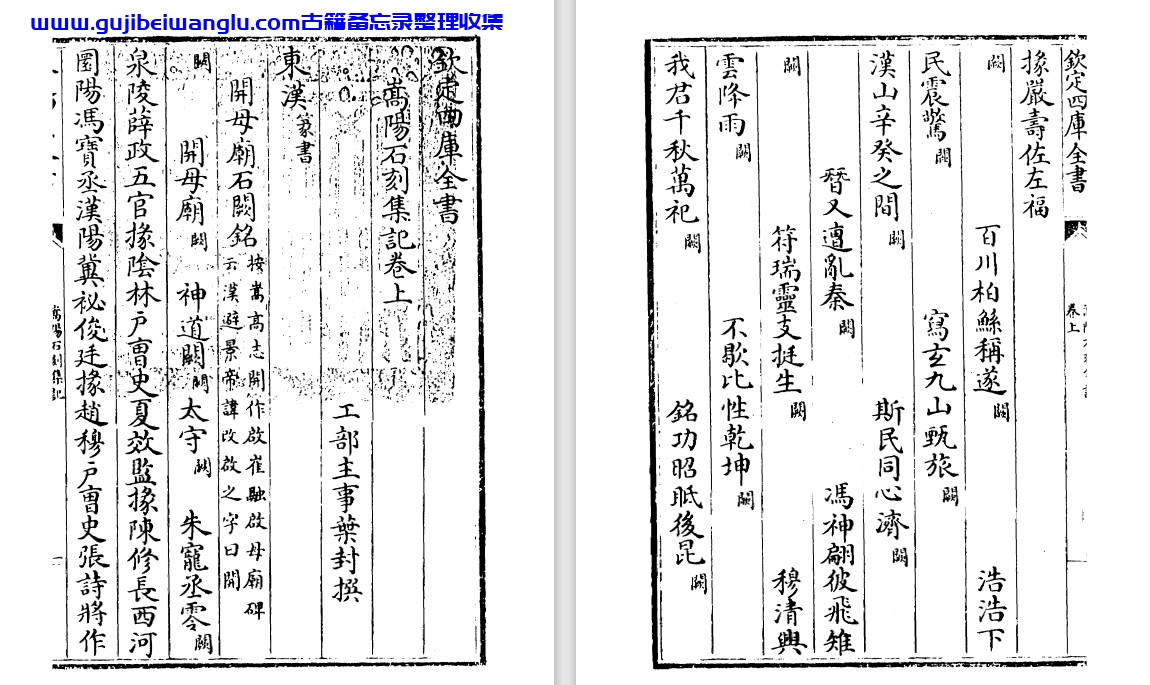 www.gujibeiwanglu.com古籍备忘录整理收集
欽定四庫全書
嵩陽石刻集記卷上
工部主事葉封撰
東漢篆書
開母廟石闕銘按嵩高志開作啟崔融啟母廟碑
云漢避景帝諱改啟之字曰開
闕 開母廟闕 神道闕闕 太守闕 朱寵丞零闕
泉陵薛政五官掾陰林戶曹史夏效監掾陳修長西河
圜陽馮寶丞漢陽冀祕俊廷掾趙穆戶曹史張詩將作
嵩陽石刻集記
一
欽定四庫全書
卷上
掾嚴壽佐左福
闕 百川柏鯀稱遂闕 浩浩下
民震驚闕 寫玄九山甄旅闕
漢山辛癸之間闕 斯民同心濟闕
朁又遭亂秦闕 馮神翩彼飛雉
闕 符瑞靈支挺生闕 穆清興
雲降雨闕 不歇比性乾坤闕
我君千秋萬祀闕 銘功昭眂後昆闕